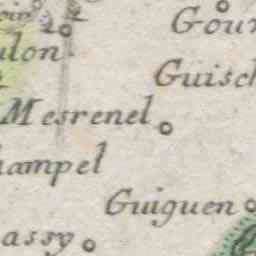 Gour
ulon
Guisch
Mesrenel
hampel
Guiguen
assy